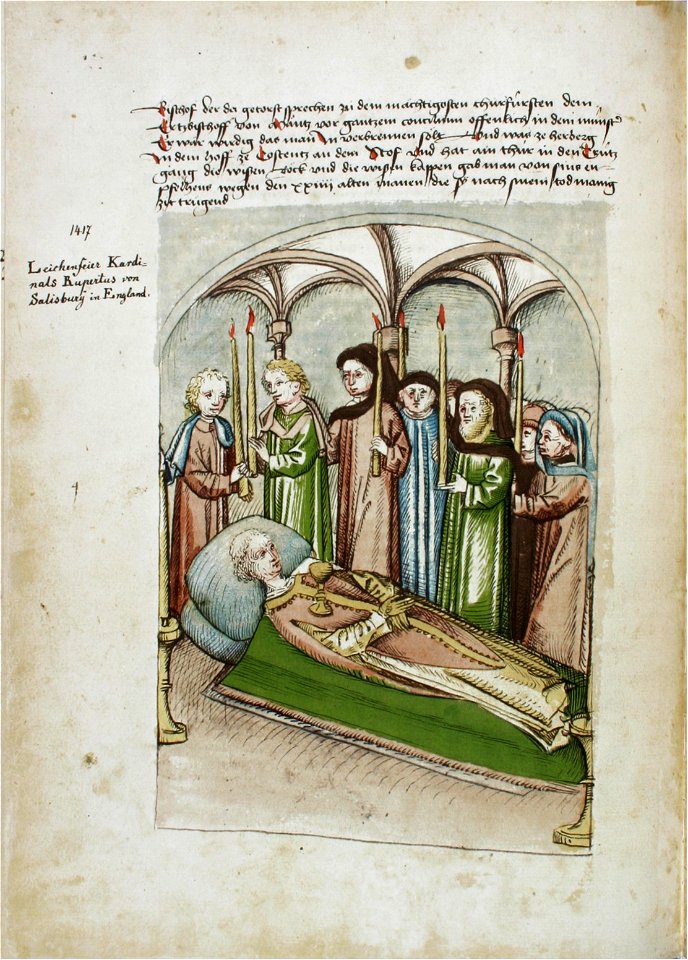 Bischof der da getorst sprechen zu dem mächtigosten churfürsten dem
Ertzbischoff von Mäntz vor gantzem concilium offenlich in dem münster
Er wär wirdig das man In verbrennen sölt Und was ze herberg
In dem hoff ze Costentz an dem Stof Und hat am thär in den Crütz
gang die wissen Röck und die wissen kappen gab man von sins en-
pfelhens wegen den XXIIII alten mannen die sy nach sinem tod manig
zit trugend
1417
Leichenfeier Kardi-
nals Rupertus von
Salisbury in England.